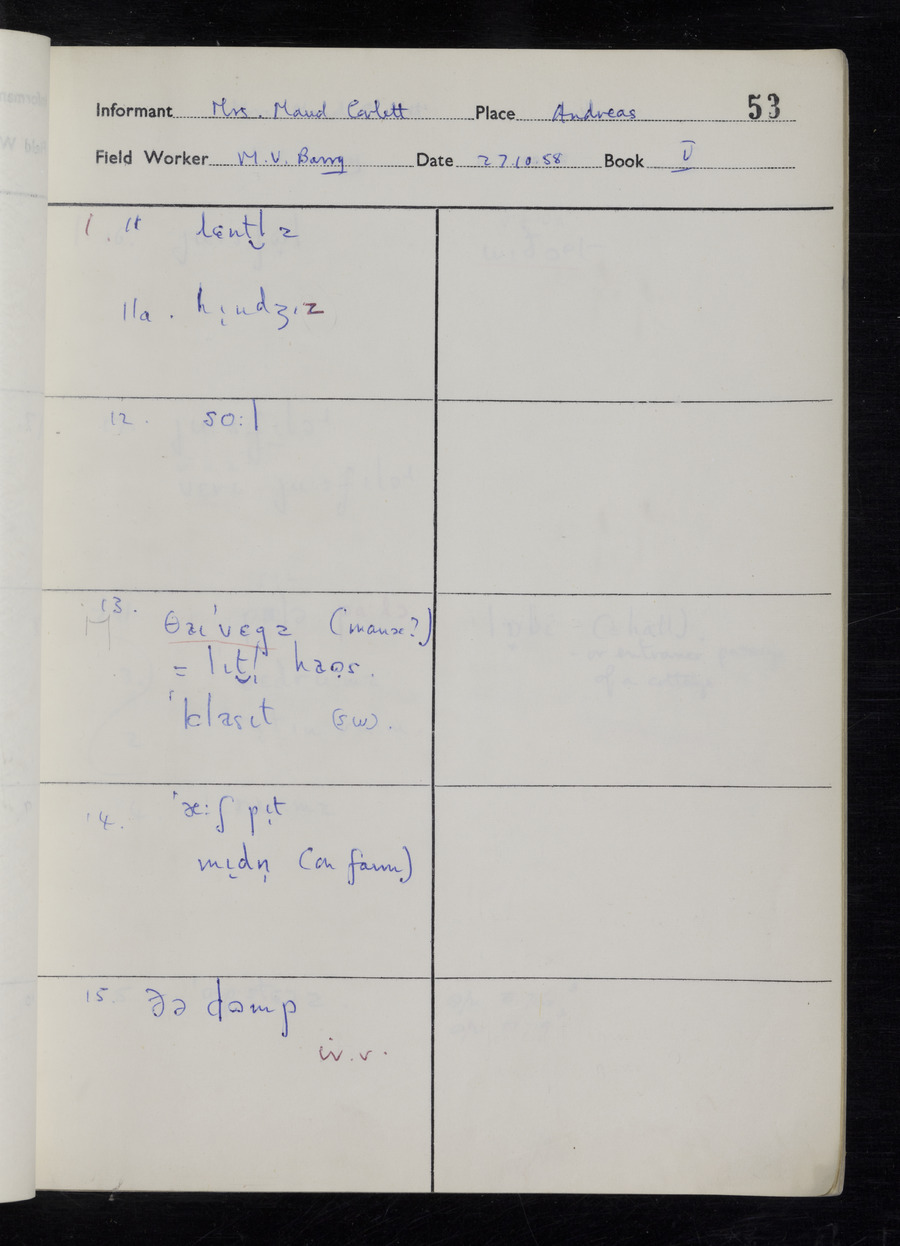 53
Informant Mrs. Maud Corlett Place Andreas
Field Worker M.V. Barry Date 27.10.58 Book V
1. 11 lɛnt̬l̩z
11a. hɪ̞ndʒɪz
12. so:l
13. (manx?)
M
= lɪt̬l̩ haʊs.
ˈklasɪt (SW).
14. ˈæ:ʃpɪt
mɪ̞dn̩ (on farm)
15. ðə dɒmp
i.r.